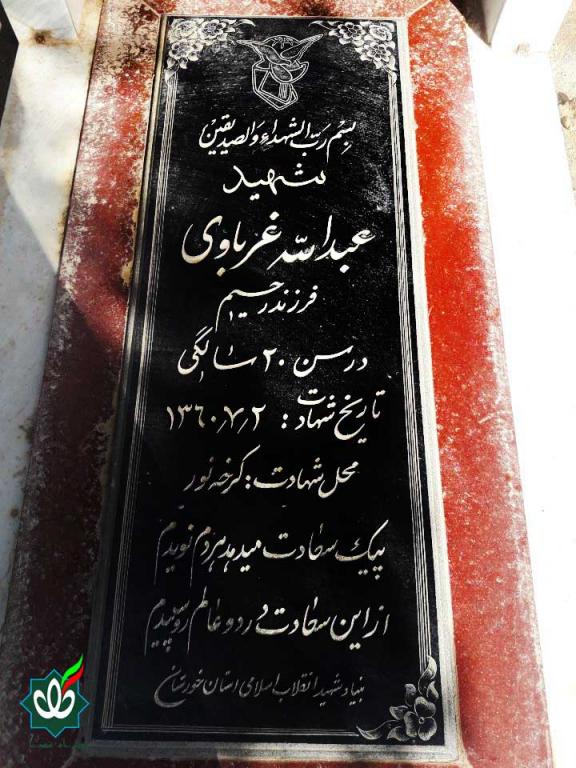 بسم رب الشهداء والصدیقین
شهید
عبدالله غرباوی
فرزند رحیم
در سن ۲۰ سالگی
تاریخ شهادت: ۱۳۶۰٫۷٫۲
محل شهادت: کرخه نور
پیک سعادت میدهد هردم نویدم
از این سعادت در دو عالم روسپیدم
بنیاد شهید انقلاب اسلامی استان خوزستان